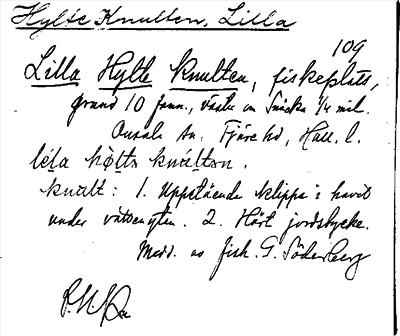 Hylte Knulten, Lilla
109
Lilla Hylte Knulten, fiskeplats,
grund 10 famn., väste om Snäcka ¼ mil.
Onsala sn. Fjäre hd, Hall. l.
knult: 1. Uppstående klippa i havet
under vattenytan. 2. Högt jordstycke.
Medd. av fisk. G. Söderberg